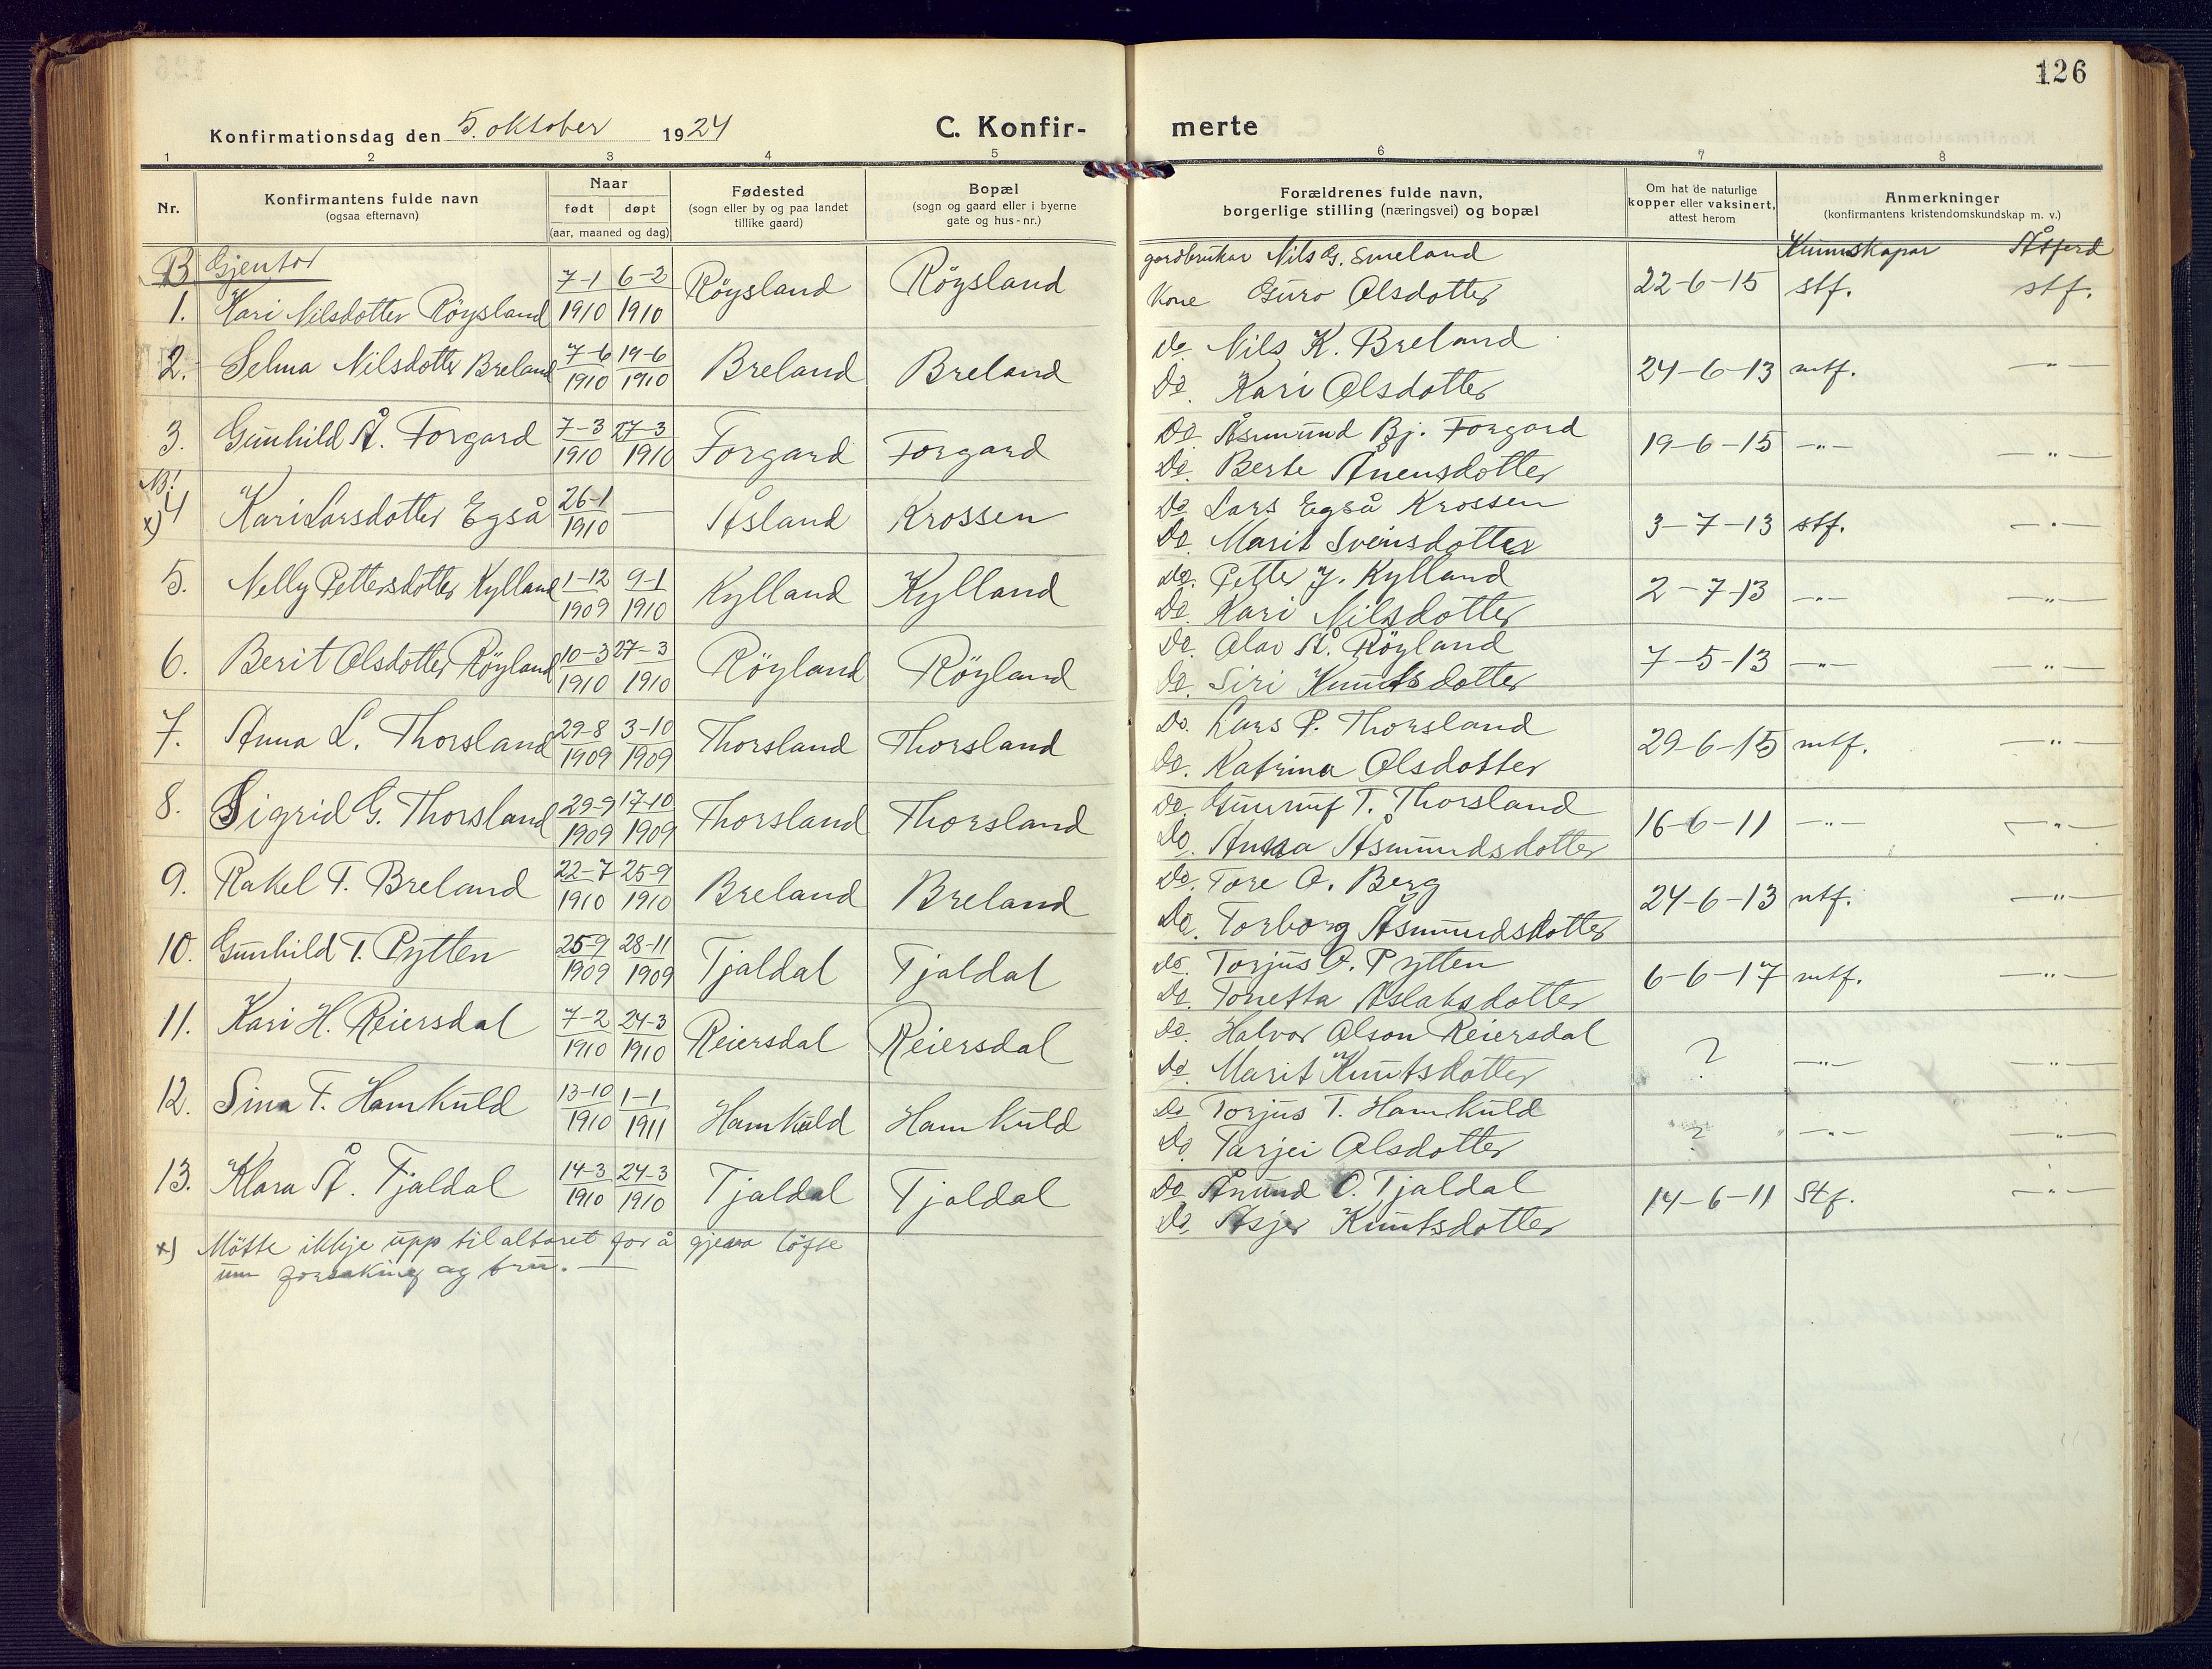 126
Konfirmationsdag den 5. oktober 1924
C. Konfir-
merte
1 2 3 4 5 6 7 8
Nr.
Konfirmantens fulde navn
(ogsaa efternavn)
Naar
født døpt
(aar, maaned og dag)
Fødested
(sogn eller by og paa landet
tillike gaard)
Bopæl
(sogn og gaard eller i byerne
gate og hus-nr.)
Forældrenes fulde navn,
borgerlige stilling (næringsvei) og bopæl
Om hat de naturlige
kopper eller vaksinert,
attest herom
Anmerkninger
(konfirmantens kristendomskundskap m. v.)
B Gjentor
Kunnskapar Åtferd
1. Kari Nilsdotter Röysland 7-1 1910 6-2 1910 Röysland Röysland
gardbrukar Nils G. Smeland
Kone Guro Olsdotter
22-6-15 stf. stf.
2. Selma Nilsdotter Breland 7-6 1910 19-6 1910 Breland Breland
do. Nils K. Breland
Do. Kari Olsdotter
24-6-13 mtf. -"-
3. Gunhild Å. Forgard 7-3 1910 27-3 1910 Forgard Forgard
Do. Åsmund Bj. Forgard
Do. Berte Ånensdotter
19-6-15 -"- -"-
NB!
x) 4 Kari Larsdotter Egså 26-1 1910 — Åsland Krossen
Do. Lars Egså Krossen
Do. Marit Sveinsdotter
3-7-13 stf. -"-
5. Nelly Pettersdotter Kylland 1-12 1909 9-1 1910 Kylland Kylland
do. Petter J. Kylland
Do. Kari Nilsdotter
2-7-13 -"- -"-
6. Berit Olsdotter Röyland 10-3 1910 27-3 1910 Röyland Röyland
Do. Olav Å. Röyland
Do. Siri Knutsdotter
7-5-13 -"- -"-
7. Anna L. Thorsland 29-8 1909 3-10 1909 Thorsland Thorsland
Do. Lars P. Thorsland
Do. Katrina Olsdotter
29-6-15 mtf. -"-
8. Sigrid G. Thorsland 29-9 1909 17-10 1909 Thorsland Thorsland
Do. Gunnuf T. Thorsland
Do. Anna Åsmundsdotter
16-6-11 -"- -"-
9. Rakel T. Breland 22-7 1910 25-9 1910 Breland Breland
Do. Tore O. Berg
Do. Torborg Åsmundsdotter
24-6-13 ntf. -"-
10. Gunhild T. Pytten 25-9 1909 28-11 1909 Tjaldal Tjaldal
do. Torjus O. Pytten
Do. Tonetta Aslaksdotter
6-6-17 mtf. -"-
11. Kari H. Reiersdal 7-2 1910 24-3 1910 Reiersdal Reiersdal
do. Halvor Olson Reiersdal
do. Marit Knutsdotter
? -"- -"-
12. Sina T. Hamkuld 13-10 1910 1-1 1911 Hamkuld Hamkuld
do Torjus T. Hamkuld
Do. Tarjei Olsdotter
? -"- -"-
13. Klara Å. Tjaldal 14-3 1910 24-3 1910 Tjaldal Tjaldal
Do Ånund O. Tjaldal
Do. Asjer Knutsdotter
14-6-11 Stf. -"-
x) Mötte ikkje upp til altaret for å gjeva löfte
um forsaking og tru. —